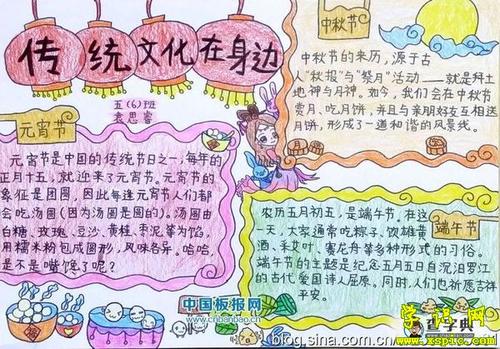 传统文化在身边
五(6)班
袁思睿
元宵节
元宵节是中国的传统节日之一,每年的
正月十五,就迎来了元宵节。元宵节的
象征是团圆,因此每逢元宵节人们都
会吃汤圆(因为汤圆是圆的)。汤圆由
白糖、玫瑰、豆沙、黄桂、枣泥等为馅,
用糯米粉包成圆形,风味各异。哈哈,
是不是嘴馋了呢?
中秋节
中秋节的来历,源于古
人"秋报"与"祭月"活动——就是拜土
地神与月神。如今,我们会在中秋节
赏月、吃月饼,并且与亲朋好友互相送
月饼,形成了一道和谐的风景线。
端午节
农历五月初五,是端午节。在这
一天,大家通常吃粽子、饮雄黄
酒、采艾叶、赛龙舟等多种形式的习俗。
端午节的主题是纪念五月五日自沉汨罗江
的古代爱国诗人屈原。同时,人们也祈愿吉祥
平安。
中国板报网
www.cnbanbao.cn
blog.sina.com.cn
学习网
www.xspic.com
查字典